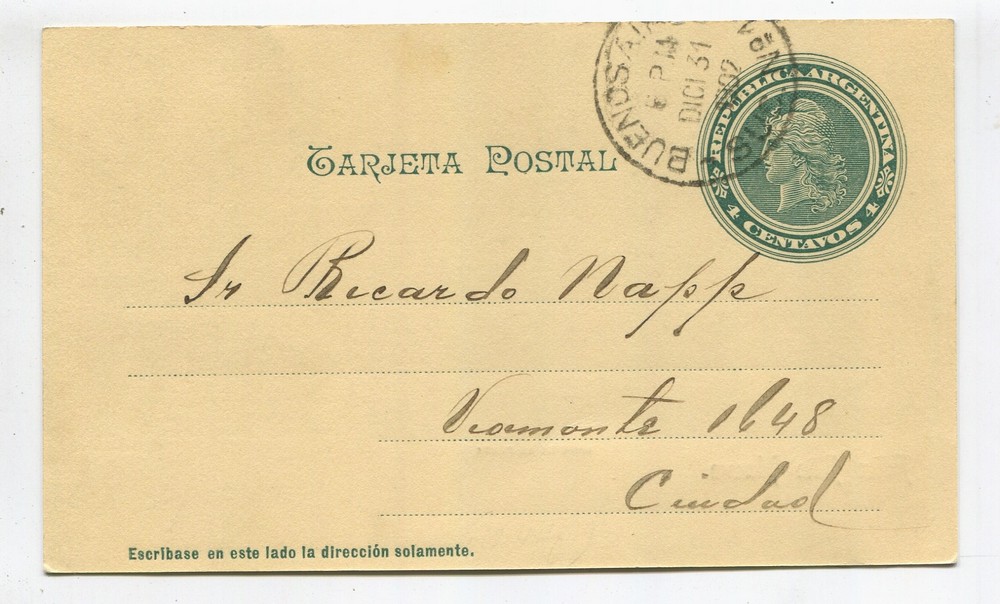 BUENOS AI
DICI 31
REPUBLICA ARGENTINA
4 CENTAVOS 4
TARJETA POSTAL
Sr Ricardo Napp
Viamonte 1648
Ciudad
Escríbase en este lado la dirección solamente.